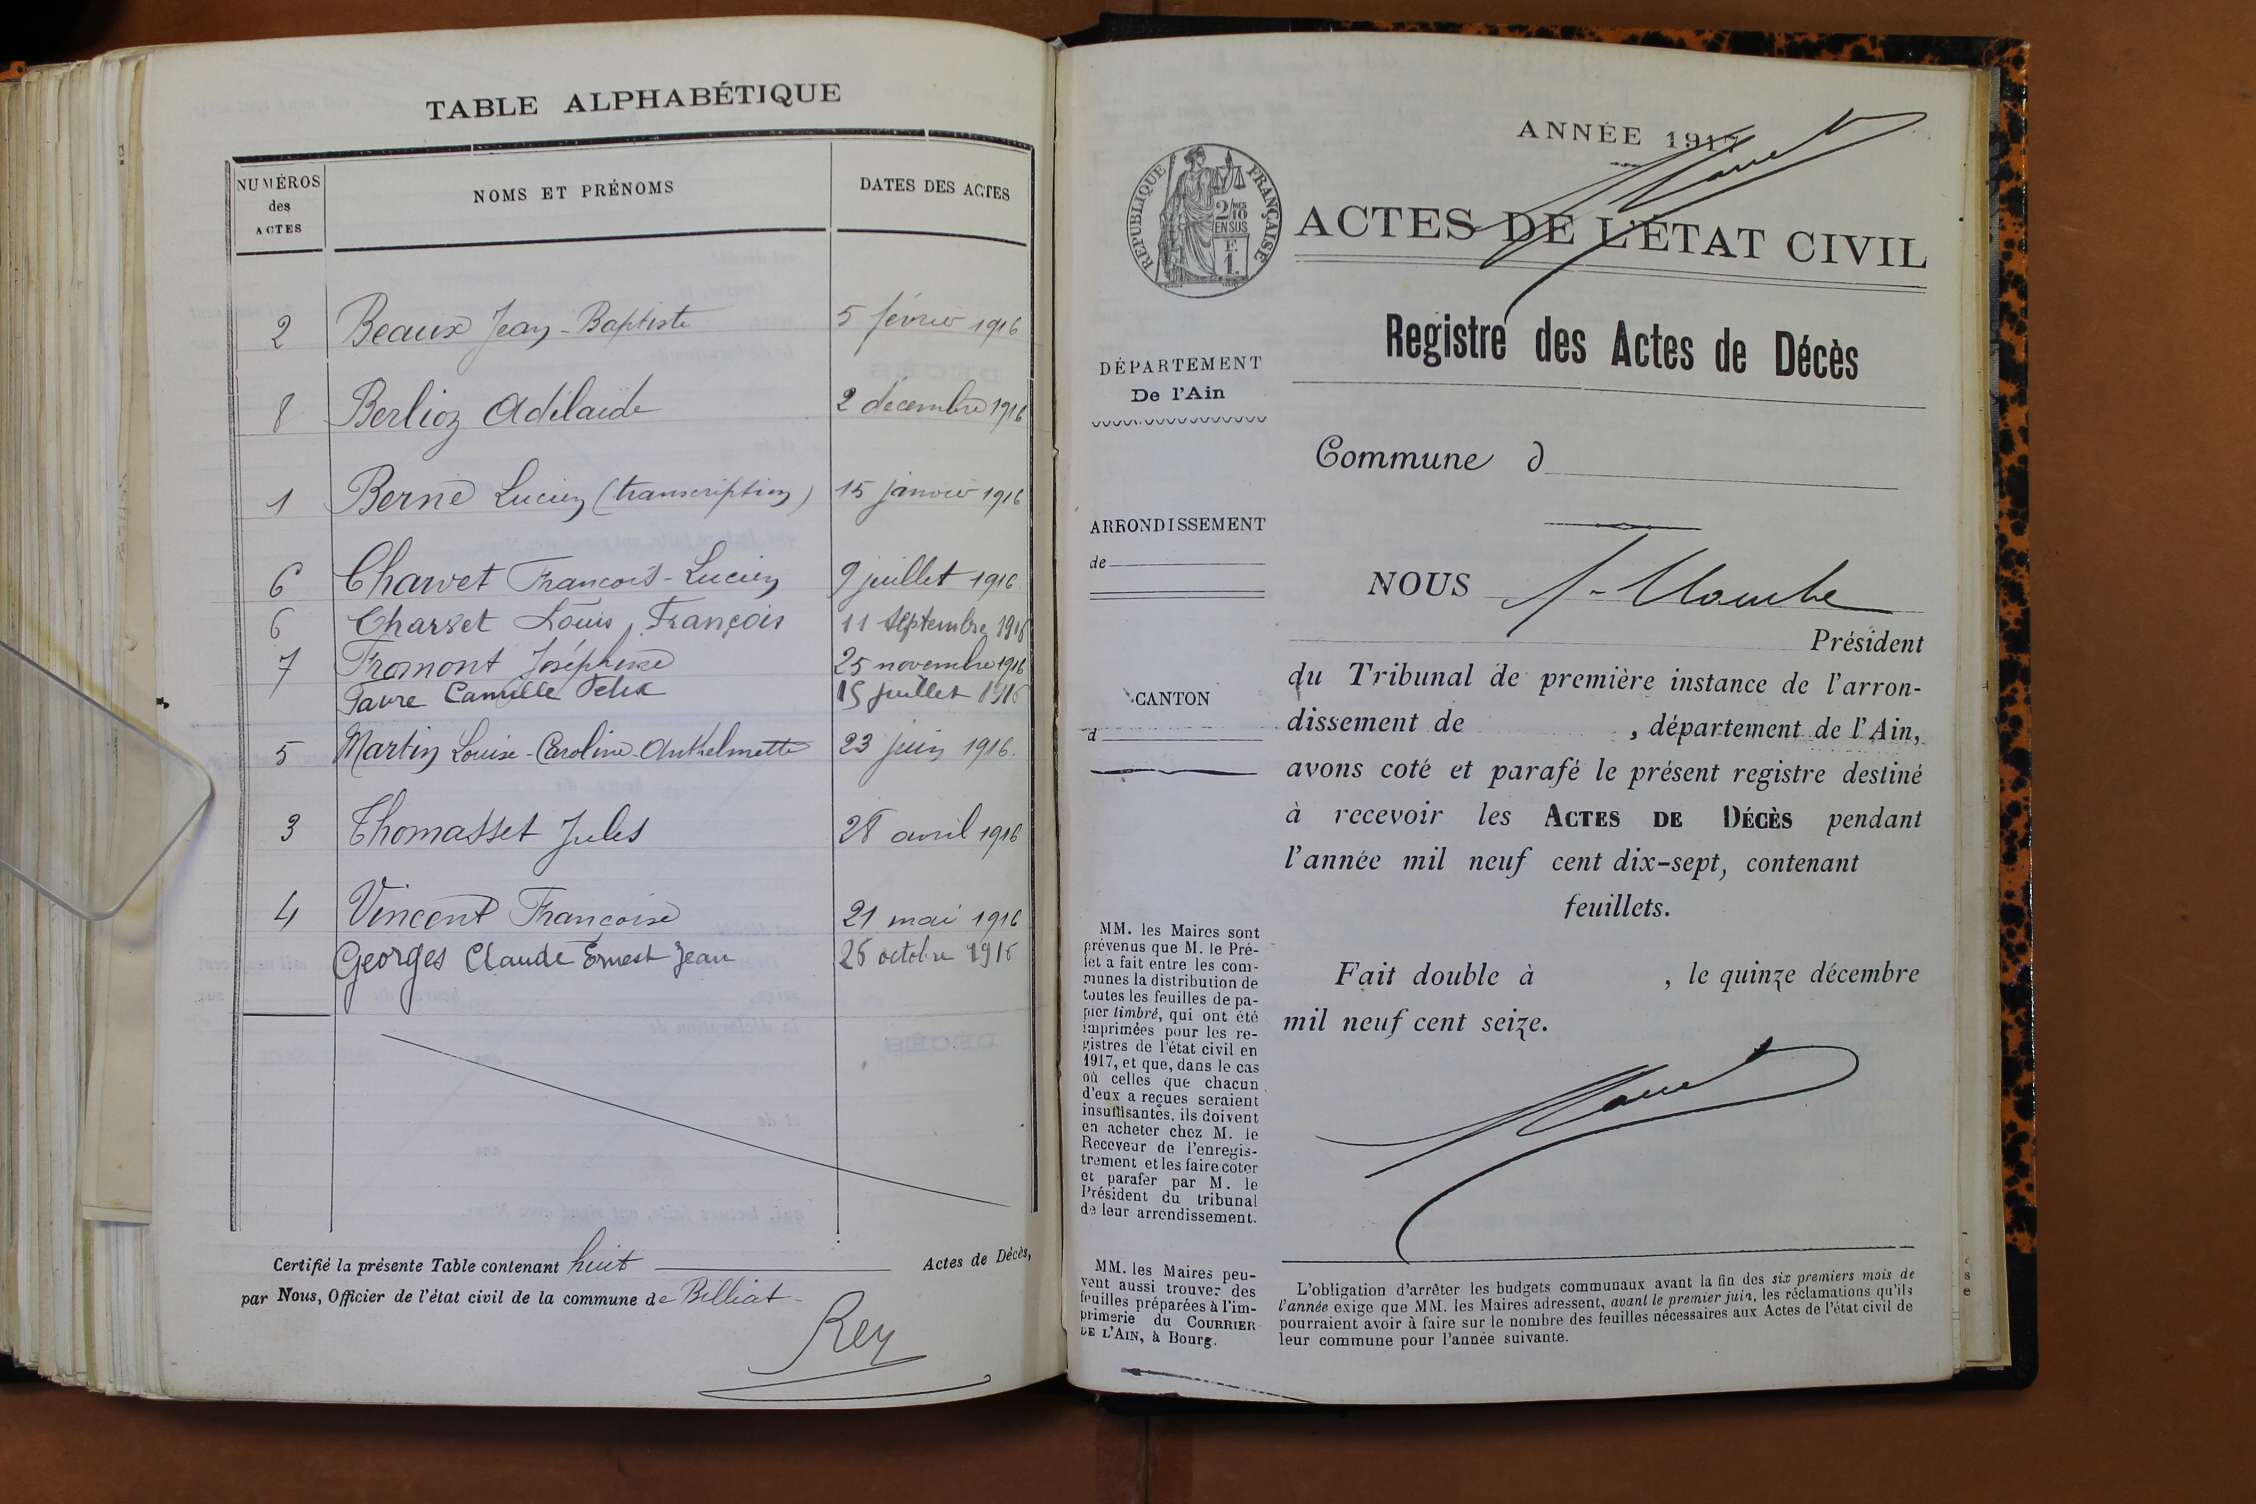 TABLE ALPHABÉTIQUE
NUMÉROS des ACTES
NOMS ET PRÉNOMS
DATES DES ACTES
2 Beaux Jean-Baptiste 5 février 1916
8 Berlioz Adélaïde 2 décembre 1916
1 Berne Lucien (transcription) 15 janvier 1916
6 Charvet François-Lucien 9 juillet 1916
6 Charvet Louis François 11 septembre 1916
7 Fromont Joséphine 25 novembre 1916
Favre Camille Felix 15 juillet 1916
5 Martin Louise-Caroline-Anthelmette 23 juin 1916.
3 Thomasset Jules 28 avril 1916
4 Vincent Françoise 21 mai 1916
Georges Claude Ernest Jean 26 octobre 1916
Certifié la présente Table contenant huit Actes de Décès,
par Nous, Officier de l'état civil de la commune de Billiat
Rey
ANNÉE 1917
RÉPUBLIQUE FRANÇAISE
2/10 MES
EN SUS
F.
1.
ACTES DE L'ÉTAT CIVIL
Registre des Actes de Décès
DÉPARTEMENT
De l'Ain
Commune d
ARRONDISSEMENT
de
NOUS
Président
CANTON
d
du Tribunal de première instance de l'arron-
dissement de , département de l'Ain,
avons coté et parafé le présent registre destiné
à recevoir les ACTES DE DÉCÈS pendant
l'année mil neuf cent dix-sept, contenant
feuillets.
Fait double à , le quinze décembre
mil neuf cent seize.
MM. les Maires sont
prévenus que M. le Pré-
fet a fait entre les com-
munes la distribution de
toutes les feuilles de pa-
pier timbré, qui ont été
imprimées pour les re-
gistres de l'état civil en
1917, et que, dans le cas
où celles que chacun
d'eux a reçues seraient
insuffisantes, ils doivent
en acheter chez M. le
Receveur de l'enregis-
trement et les faire coter
et parafer par M. le
Président du tribunal
de leur arrondissement.
MM. les Maires peu-
vent aussi trouver des
feuilles préparées à l'im-
primerie du COURRIER
DE L'AIN, à Bourg.
L'obligation d'arrêter les budgets communaux avant la fin des six premiers mois de
l'année exige que MM. les Maires adressent, avant le premier juin, les réclamations qu'ils
pourraient avoir à faire sur le nombre des feuilles nécessaires aux Actes de l'état civil de
leur commune pour l'année suivante.